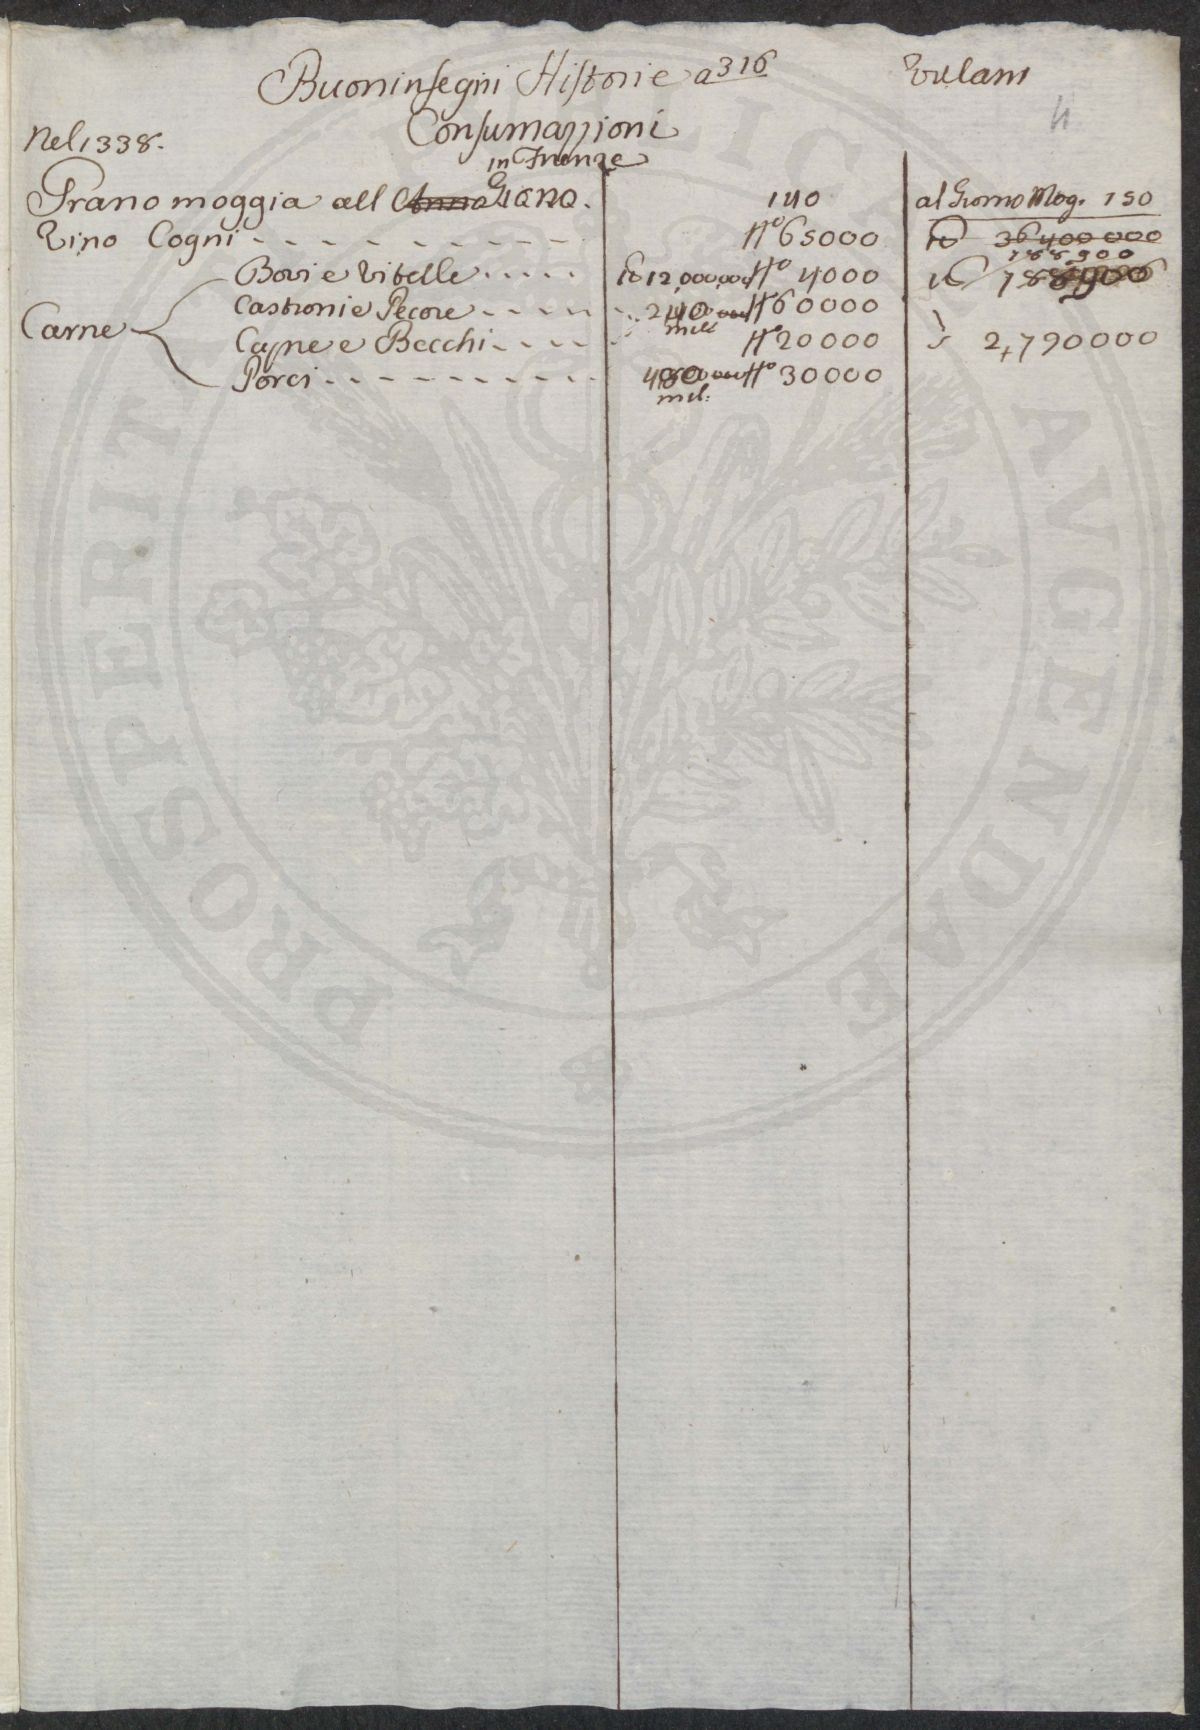 Buoninsegni Historie a 316 Villani
4
Nel 1338. Consumazzioni
in Firenze
Grano moggia all Anno Giorno. 140 al Giorno Mog. 150
Vino Cogni - - - - - - - - - - Nº 65000 36400 000
188,900
Bovi e Vitelle - - - - - 12,000,000 Nº 4000
Castroni e Pecore - - - - - - 240 Nº 60000
mil
Carne
Capre e Becchi - - - - - Nº 20000 2,790000
Porci - - - - - - - - - - - - Nº 30000
mil:
PROSPERITATI PUBLICAE AVGENDAE